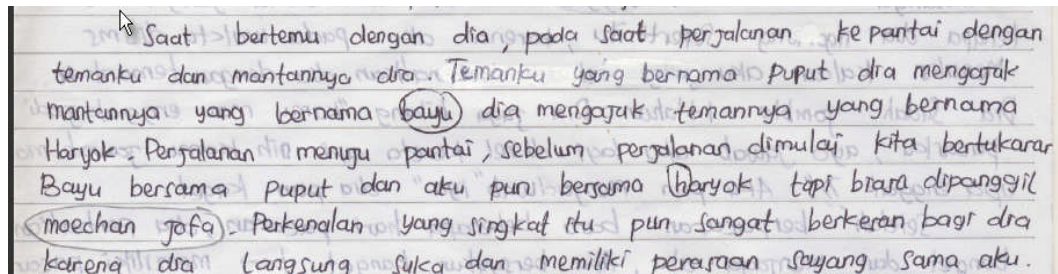 Saat bertemu dengan dia, pada saat perjalanan ke pantai dengan
temanku dan mantannya dia. Temanku yang bernama puput dia mengajak
mantannya yang bernama bayu dia mengajak temannya yang bernama
Haryok. Perjalanan menuju pantai, sebelum perjalanan dimulai kita bertukaran
Bayu bersama puput dan aku pun bersama haryok tapi biasa dipanggil
moechan jofa. Perkenalan yang singkat itu pun sangat berkeran bagi dia
karena dia langsung suka dan memiliki perasaan sayang sama aku.